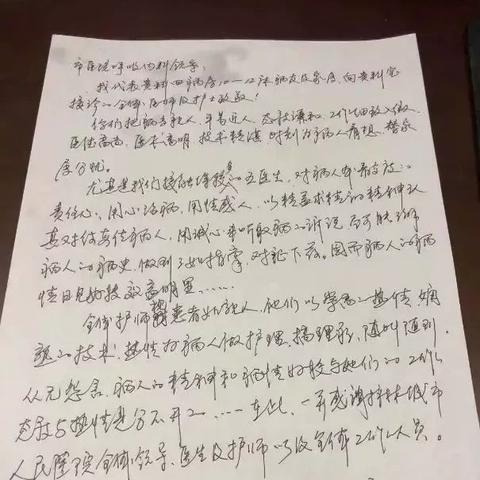 市医院呼吸内科领导:
我代表贵科四病房10—12床病友及家属,向贵科
接诊的全体医师及护士致敬!
你们把病友亲人,平易近人,态度谦和,工作细致入微,
医德高尚,医术高明,技术精湛,时刻为病人着想,替家
属分忧。
尤其是我们接触的医生,对病人
责任心,用心治病,用情感人,以精益求精的精神认
真对待每位病人,用诚心来听取病人的诉说,
病人的病史,做到了如指掌,对症下药,因而病人的病
情日见好转效果明显……
全体护师视患者如亲人,他们以学高的热情,娴
熟的技术,热情对病人做护理,搞理疗,随叫随到,
从无怨言,病人的精神和病情好转与她们的工作
态度与热情是分不开的……在此,一并感谢桂林城市
人民医院全体领导、医生及护师以及全体工作人员。